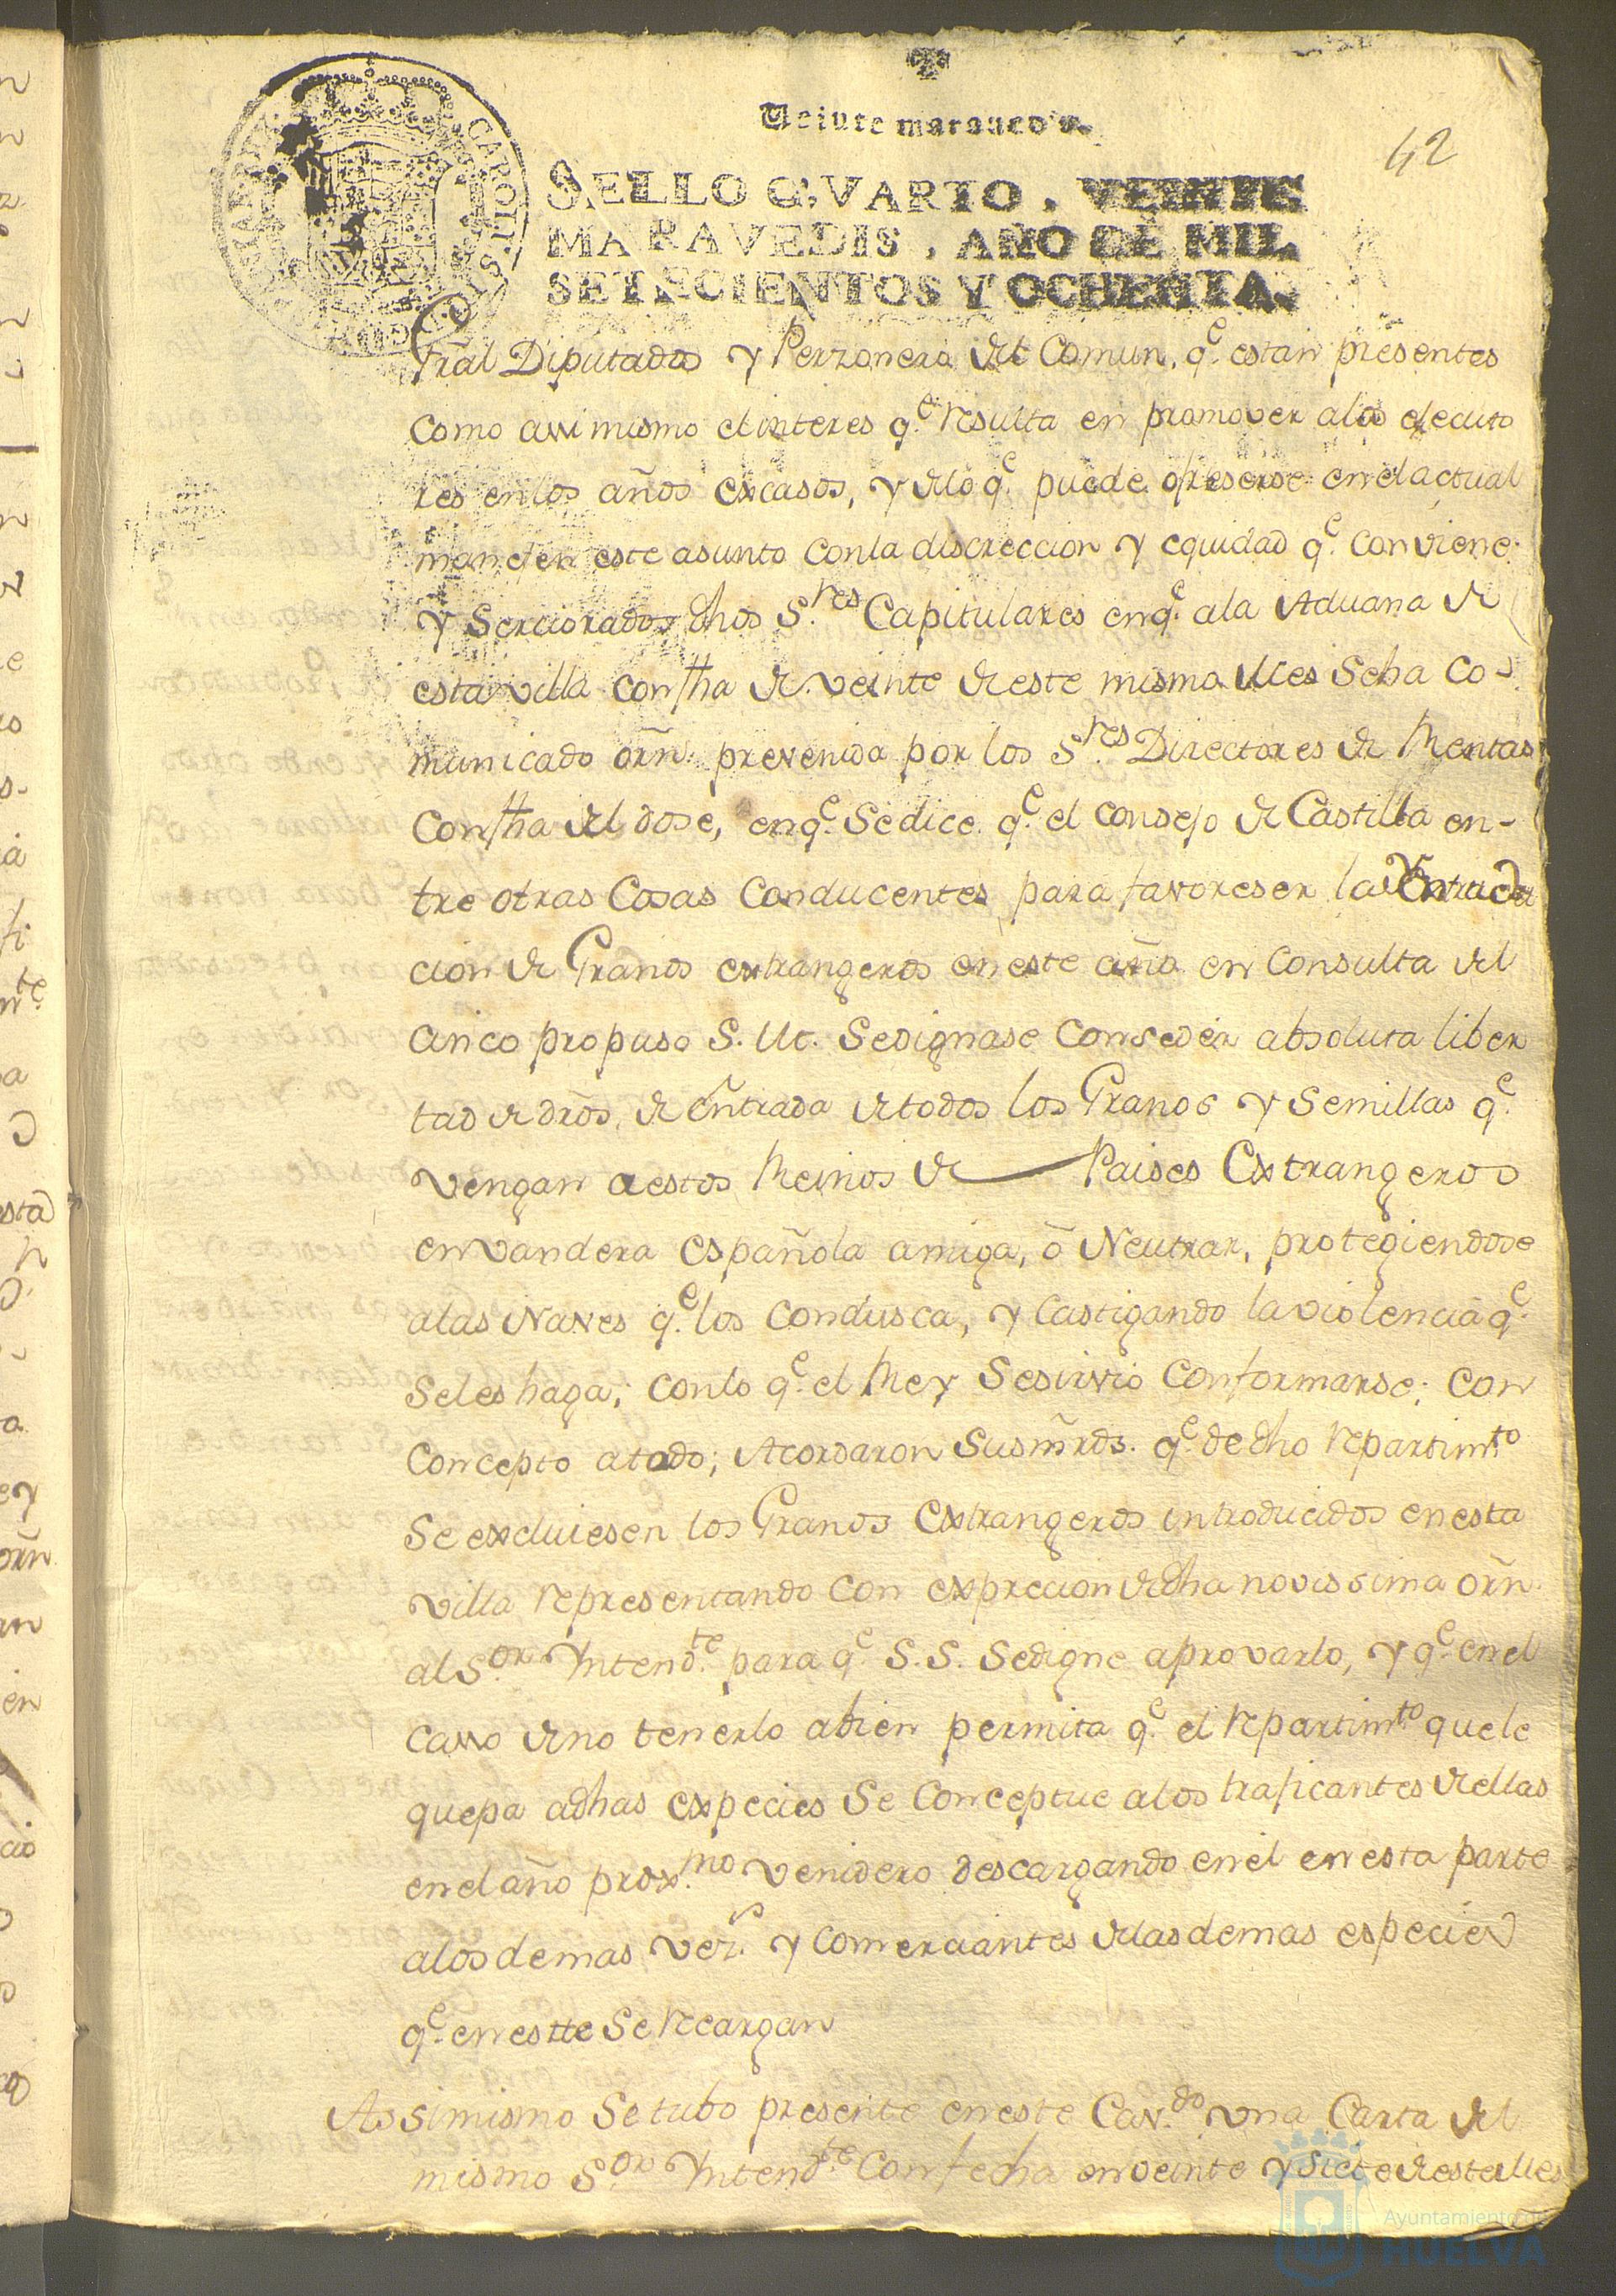 Veinte maravedis.
42
SELLO QVARTO, VEINTE
MARAVEDIS, AÑO DE MIL
SETECIENTOS Y OCHENTA.
CAROLUS
Grãl Diputados y Perzonero del Comun, q.e estan presentes
como assi mismo el interes q.e resulta en promover a los
res en los años excasos, y de lo q.e puede ofreserse en el actual
en este asunto con la discreccion y equidad q.e conviene:
y Serciorados dhos S.res Capitulares en q.e a la Aduana de
esta villa con fha de veinte de este mismo Mes Se ha Co-
municado orñ. prevenida por los S.res Directores de Rentas
Con fha del dose, en q.e Se dice q.e el consejo de Castilla en-
tre otras Cosas Conducentes para favoreser la Yntroduc
cion de Granos extrangeros en este año en Consulta del
cinco propuso S. M. Se dignase Conseder absoluta liber
tad de dros. de entrada de todos los Granos y Semillas q.e
vengan a estos Reinos de Paises Extrangeros
en vandera española amiga, ô Neutrar, protegiendose
a las Naves q.e los Condusca, y Castigando la violencia q.e
Se les haga; Con lo q.e el Rey Se sirvio Conformarse; Con
Concepto a todo; Acordaron Sus mrds. q.e de dho repartim.to
Se excluiesen los Granos Extrangeros introducidos en esta
villa representando Con exprecion de dha novissima orñ.
al S.or Yntend.te para q.e S. S. Se digne aprovarlo, y q.e en el
casso de no tenerlo a bien permita q.e el repartim.to que le
quepa a dhas expecies Se Conceptue a los traficantes de ellas
en el año prox.mo venidero descargando en el en esta parte
a los demas vez.s y Comerciantes de las demas especies
q.e en estte Se recargan
Assimismo Se tubo presente en este Cav.do una Carta del
mismo S.or Yntend.te Con fecha en veinte y Siete de este Mes
Ayuntamiento de
HUELVA